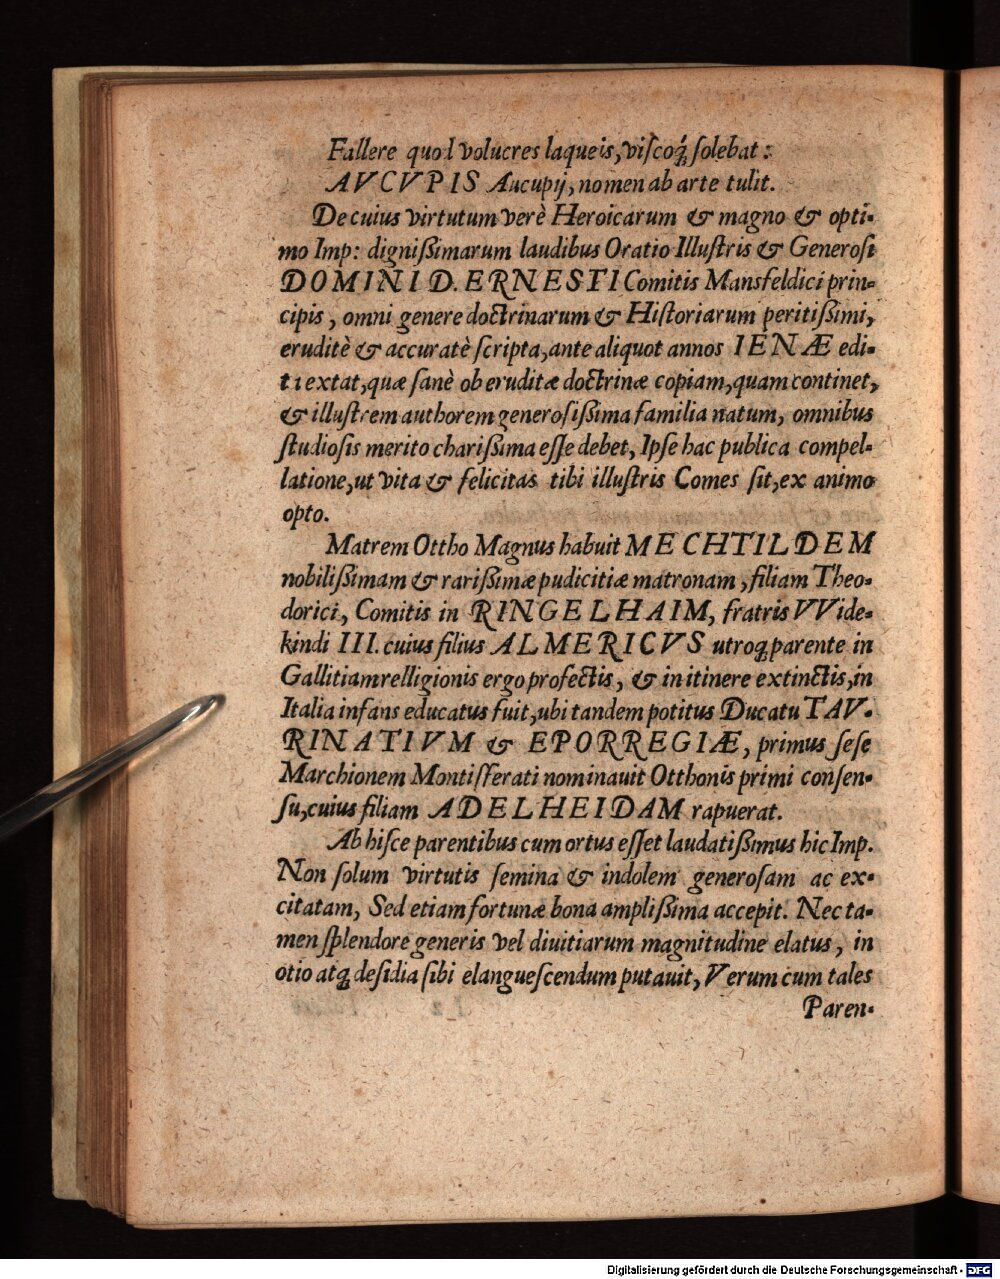 Fallere quod volucres laqueis, viſcoq́; ſolebat:
AVCVPIS Aucupij, nomen ab arte tulit.
De cuius virtutum verè Heroicarum & magno & opti-
mo Imp: digniſſimarum laudibus Oratio Illuſtris & Generoſi
DOMINI D. ERNESTI Comitis Mansfeldici prin-
cipis, omni genere doctrinarum & Hiſtoriarum peritiſſimi,
eruditè & accuratè ſcripta, ante aliquot annos IENÆ edi-
ti extat, quæ ſanè ob eruditæ doctrinæ copiam, quam continet,
& illuſtrem authorem generoſiſſima familia natum, omnibus
ſtudioſis merito chariſſima eſſe debet, Ipſe hac publica compel-
latione, ut vita & felicitas tibi illuſtris Comes ſit, ex animo
opto.
Matrem Ottho Magnus habuit MECHTILDEM
nobiliſſimam & rariſſimæ pudicitiæ matronam, filiam Theo-
dorici, Comitis in RINGELHAIM, fratris VVide-
kindi III. cuius filius ALMERICVS utroq; parente in
Gallitiam relligionis ergo profectis, & in itinere extinctis, in
Italia infans educatus fuit, ubi tandem potitus Ducatu TAV-
RINATIVM & EPORREGIÆ, primus ſeſe
Marchionem Montiſferati nominauit Otthonis primi conſen-
ſu, cuius filiam ADELHEIDAM rapuerat.
Ab hiſce parentibus cum ortus eſſet laudatiſſimus hic Imp.
Non ſolum virtutis ſemina & indolem generoſam ac ex-
citatam, Sed etiam fortunæ bona ampliſſima accepit. Nec ta-
men ſplendore generis vel diuitiarum magnitudine elatus, in
otio atq; deſidia ſibi elangueſcendum putauit, Verum cum tales
Paren-
Digitalisierung gefördert durch die Deutsche Forschungsgemeinschaft - DFG